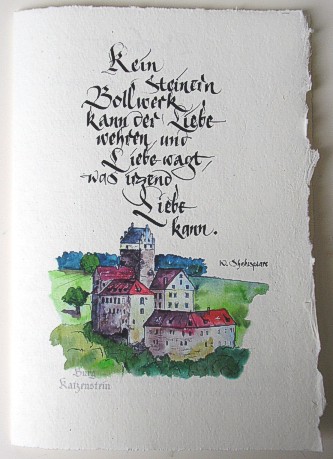 Kein
Steinern
Bollwerk
kann der Liebe
wehren und
Liebe wagt,
was irgend
Liebe
kann.
W. Shakespeare
Burg
Katzenstein